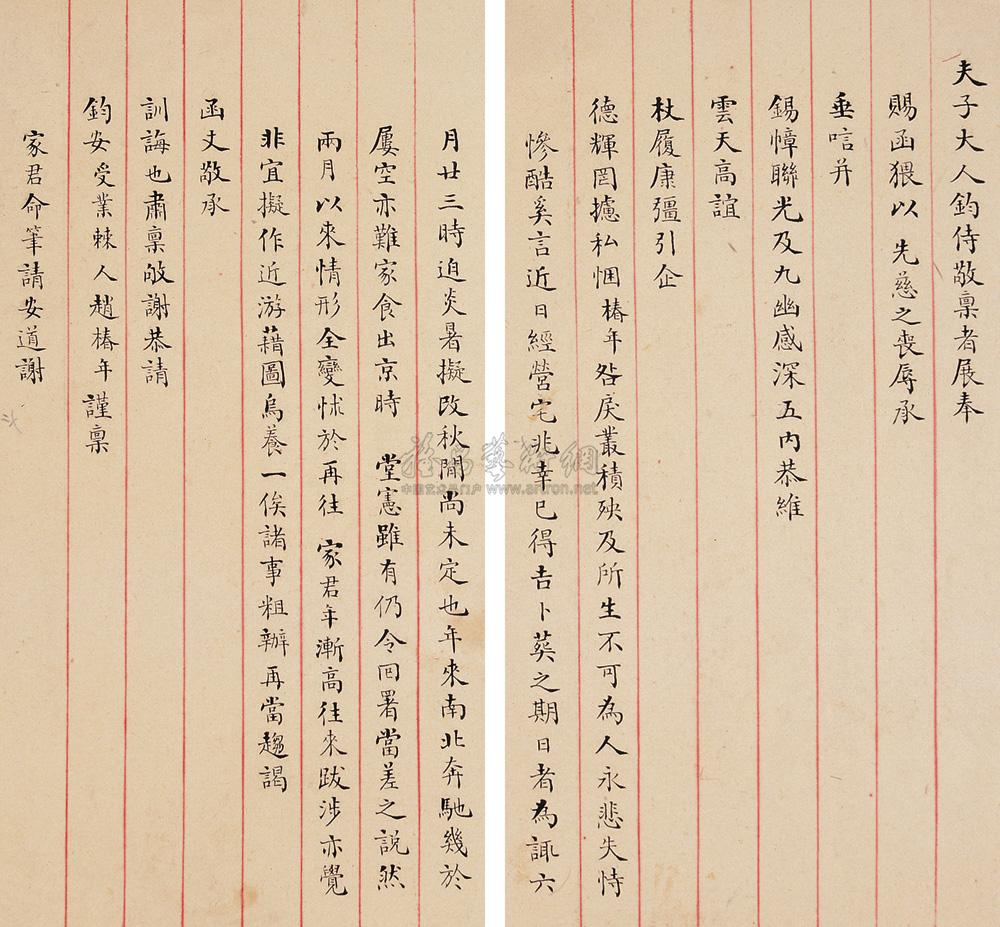 夫子大人鈞侍敬稟者展奉
賜函猥以 先慈之喪辱承
垂唁并
錫幛聯光及九幽感深五内恭維
雲天高誼
杖履康彊引企
德輝罔攄私悃椿年咎戾叢積殃及所生不可為人永悲失恃
慘酷奚言近日經營宅兆幸已得吉卜葬之期日者為諏六
月廿三時迫炎暑擬改秋間尚未定也年來南北奔馳幾於
屢空亦難家食出京時 堂憲雖有仍令回署當差之說然
兩月以來情形全變怵於再往 家君年漸高往來跋涉亦覺
非宜擬作近游藉圖烏養一俟諸事粗辦再當趨謁
函丈敬承
訓誨也肅稟敂謝恭請
鈞安受業棘人趙椿年謹稟
家君命筆請安道謝
雅昌藝術網
中国艺术品门户 www.artron.net